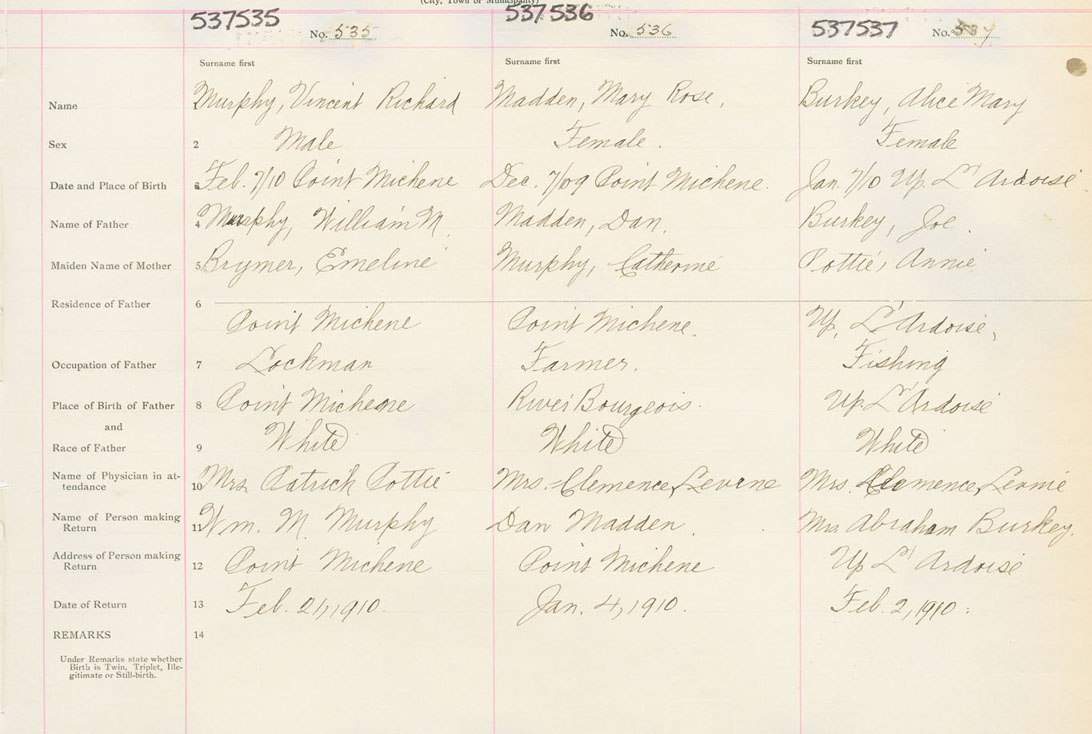 (City, Town or Municipality)
537535 No. 535 537536 No. 536 537537 No. 537
Surname first Surname first Surname first
Name 1 Murphy, Vincent Richard Madden, Mary Rose. Burkey, Alice Mary
Sex 2 Male Female. Female
Date and Place of Birth 3 Feb. 7/10 Point Michene Dec. 7/09 Point Michene. Jan 7/10 Up L'Ardoise
Name of Father 4 Murphy, William M. Madden, Dan. Burkey, Joe.
Maiden Name of Mother 5 Brymer, Emeline Murphy, Catherine Pottie, Annie
Residence of Father 6
Point Michene Point Michene. Up, L'Ardoise,
Occupation of Father 7 Lockman Farmer. Fishing
Place of Birth of Father 8 Point Michene River Bourgeois. Up L'Ardoise
and
Race of Father 9 White White White
Name of Physician in at-
tendance 10 Mrs Patrick Pottie Mrs. Clemence Mrs. Clemence
Name of Person making
Return 11 Wm. M Murphy Dan Madden Mrs Abraham Burkey.
Address of Person making
Return 12 Point Michene Point Michene Up L'Ardoise
Date of Return 13 Feb. 21, 1910. Jan. 4, 1910. Feb. 2, 1910.
REMARKS 14
Under Remarks state whether
Birth is Twin, Triplet, Ille-
gitimate or Still-birth.